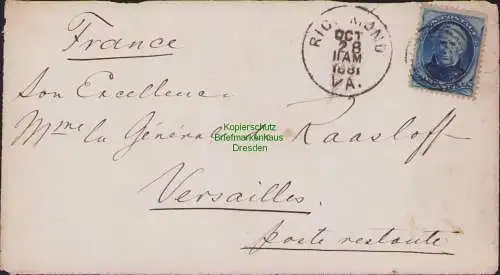 France
RICHMOND
OCT
28
11 AM
1881
VA.
Son Excellence
Mme la Générale de Raasloff
Versailles.
poste restante
Kopierschutz
Briefmarkenhaus
Dresden